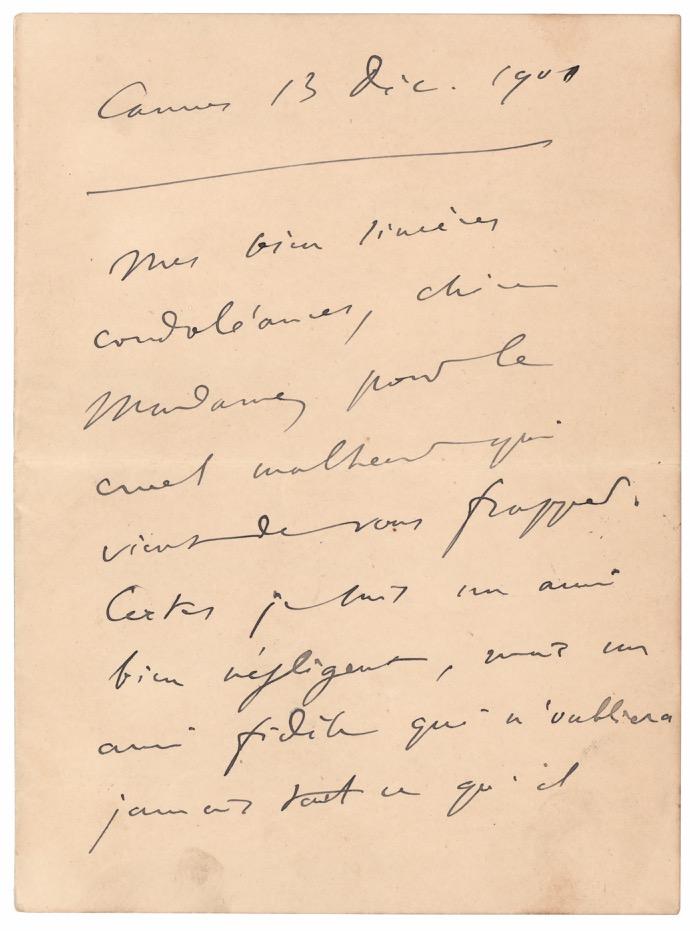 Cannes 13 Déc. 1901
Mes bien sincères
condoléances, chère
Madame, pour le
cruel malheur qui
vient de vous frapper.
Certes je suis un ami
bien négligent, mais un
ami fidèle qui n'oubliera
jamais tout ce qu'il